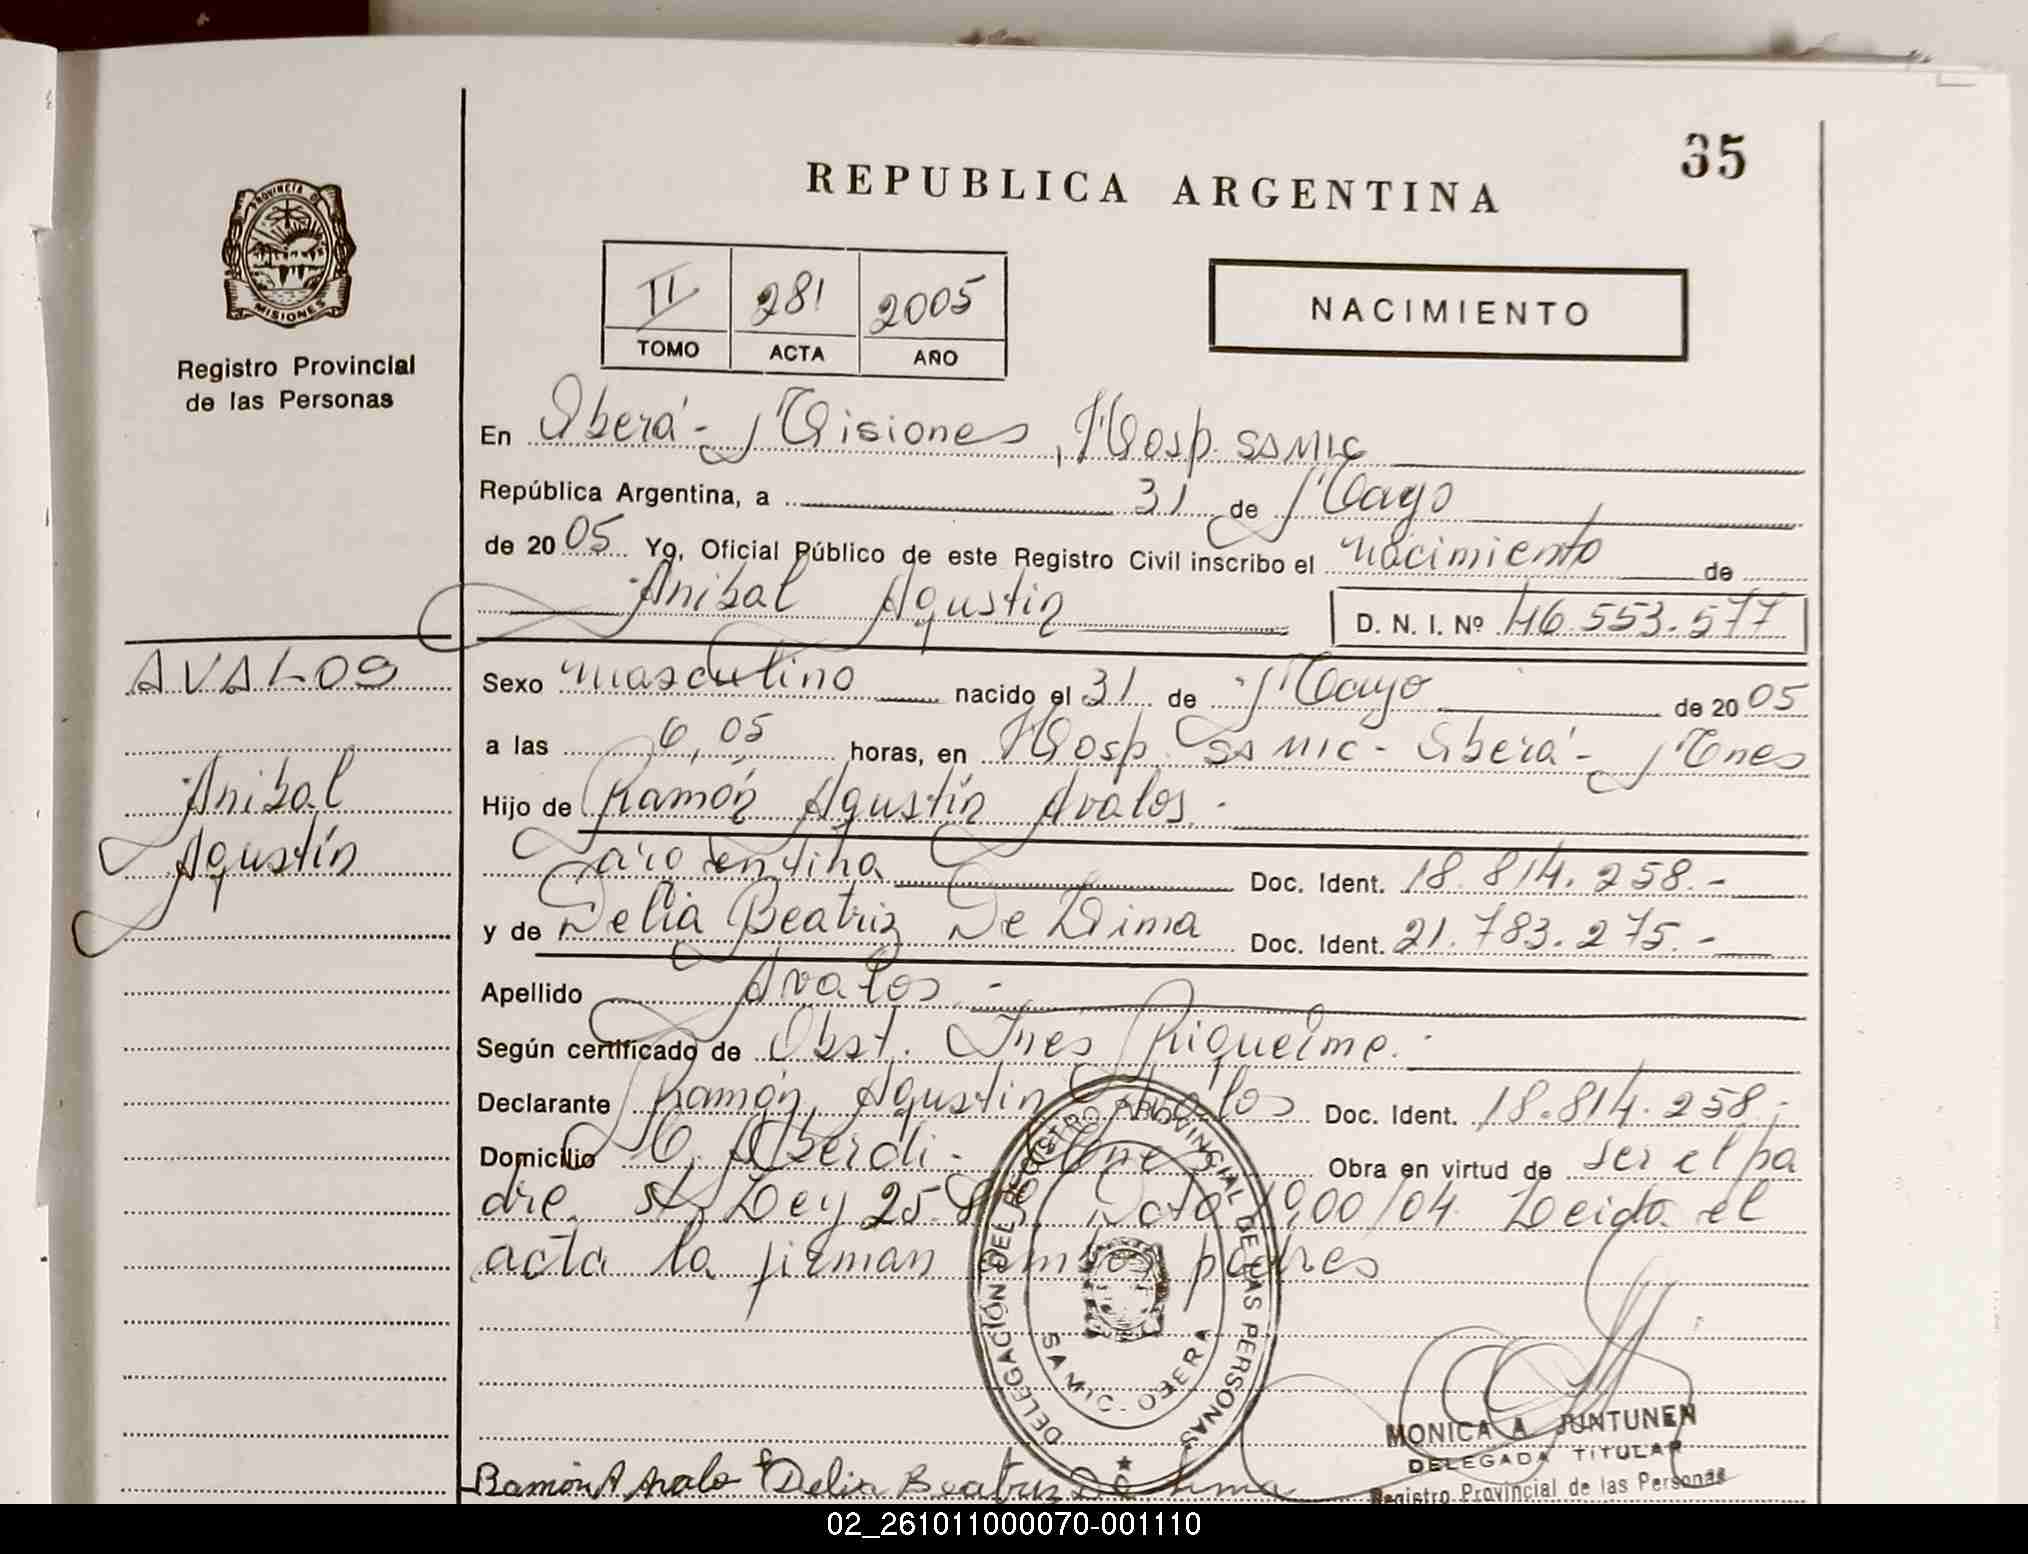 35
REPUBLICA ARGENTINA
PROVINCIA DE
MISIONES
Registro Provincial
de las Personas
II 281 2005
TOMO ACTA AÑO
NACIMIENTO
En Oberá - Misiones, Hosp. SAMIC
República Argentina, a 31 de Mayo
de 2005 Yo, Oficial Público de este Registro Civil inscribo el nacimiento de
Anibal Agustin D. N. I. Nº 46.553.577
AVALOS
Anibal
Agustín
Sexo masculino nacido el 31 de Mayo de 2005
a las 6,05 horas, en Hosp. SAMIC - Oberá - Mnes
Hijo de Ramón Agustín Avalos.-
argentina Doc. Ident. 18.814.258.-
y de Delia Beatriz De Lima Doc. Ident. 21.783.275.-
Apellido Avalos.-
Según certificado de Obst. Ines Riquelme.-
Declarante Ramón Agustin Avalos Doc. Ident. 18.814.258.-
Domicilio Alberdi - Mnes Obra en virtud de ser el pa
dre. s/ Ley 25.819 Dcto 1900/04. Leida el
acta la firman ambos padres
DELEGACIÓN DEL REGISTRO PROVINCIAL DE LAS PERSONAS
SAMIC - OBERA
MONICA A. JUNTUNEN
DELEGADA TITULAR
Registro Provincial de las Personas
Ramón A Avalo Delia Beatriz De Lima
02_261011000070-001110